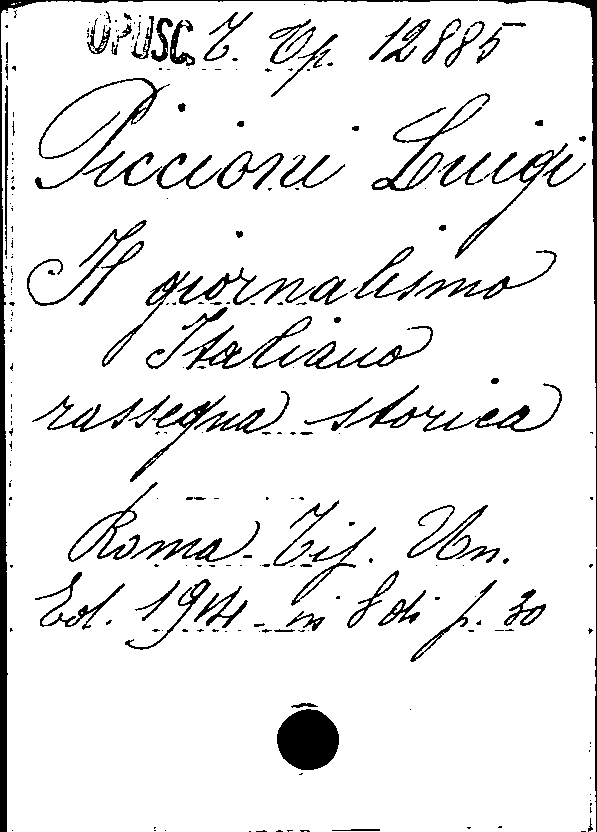 OPUSC. T. Op. 12885
Piccioni Luigi
Il giornalismo
Italiano
rassegna storica
Roma. Tip. Un.
Ed. 1914 - in 8 di p. 30